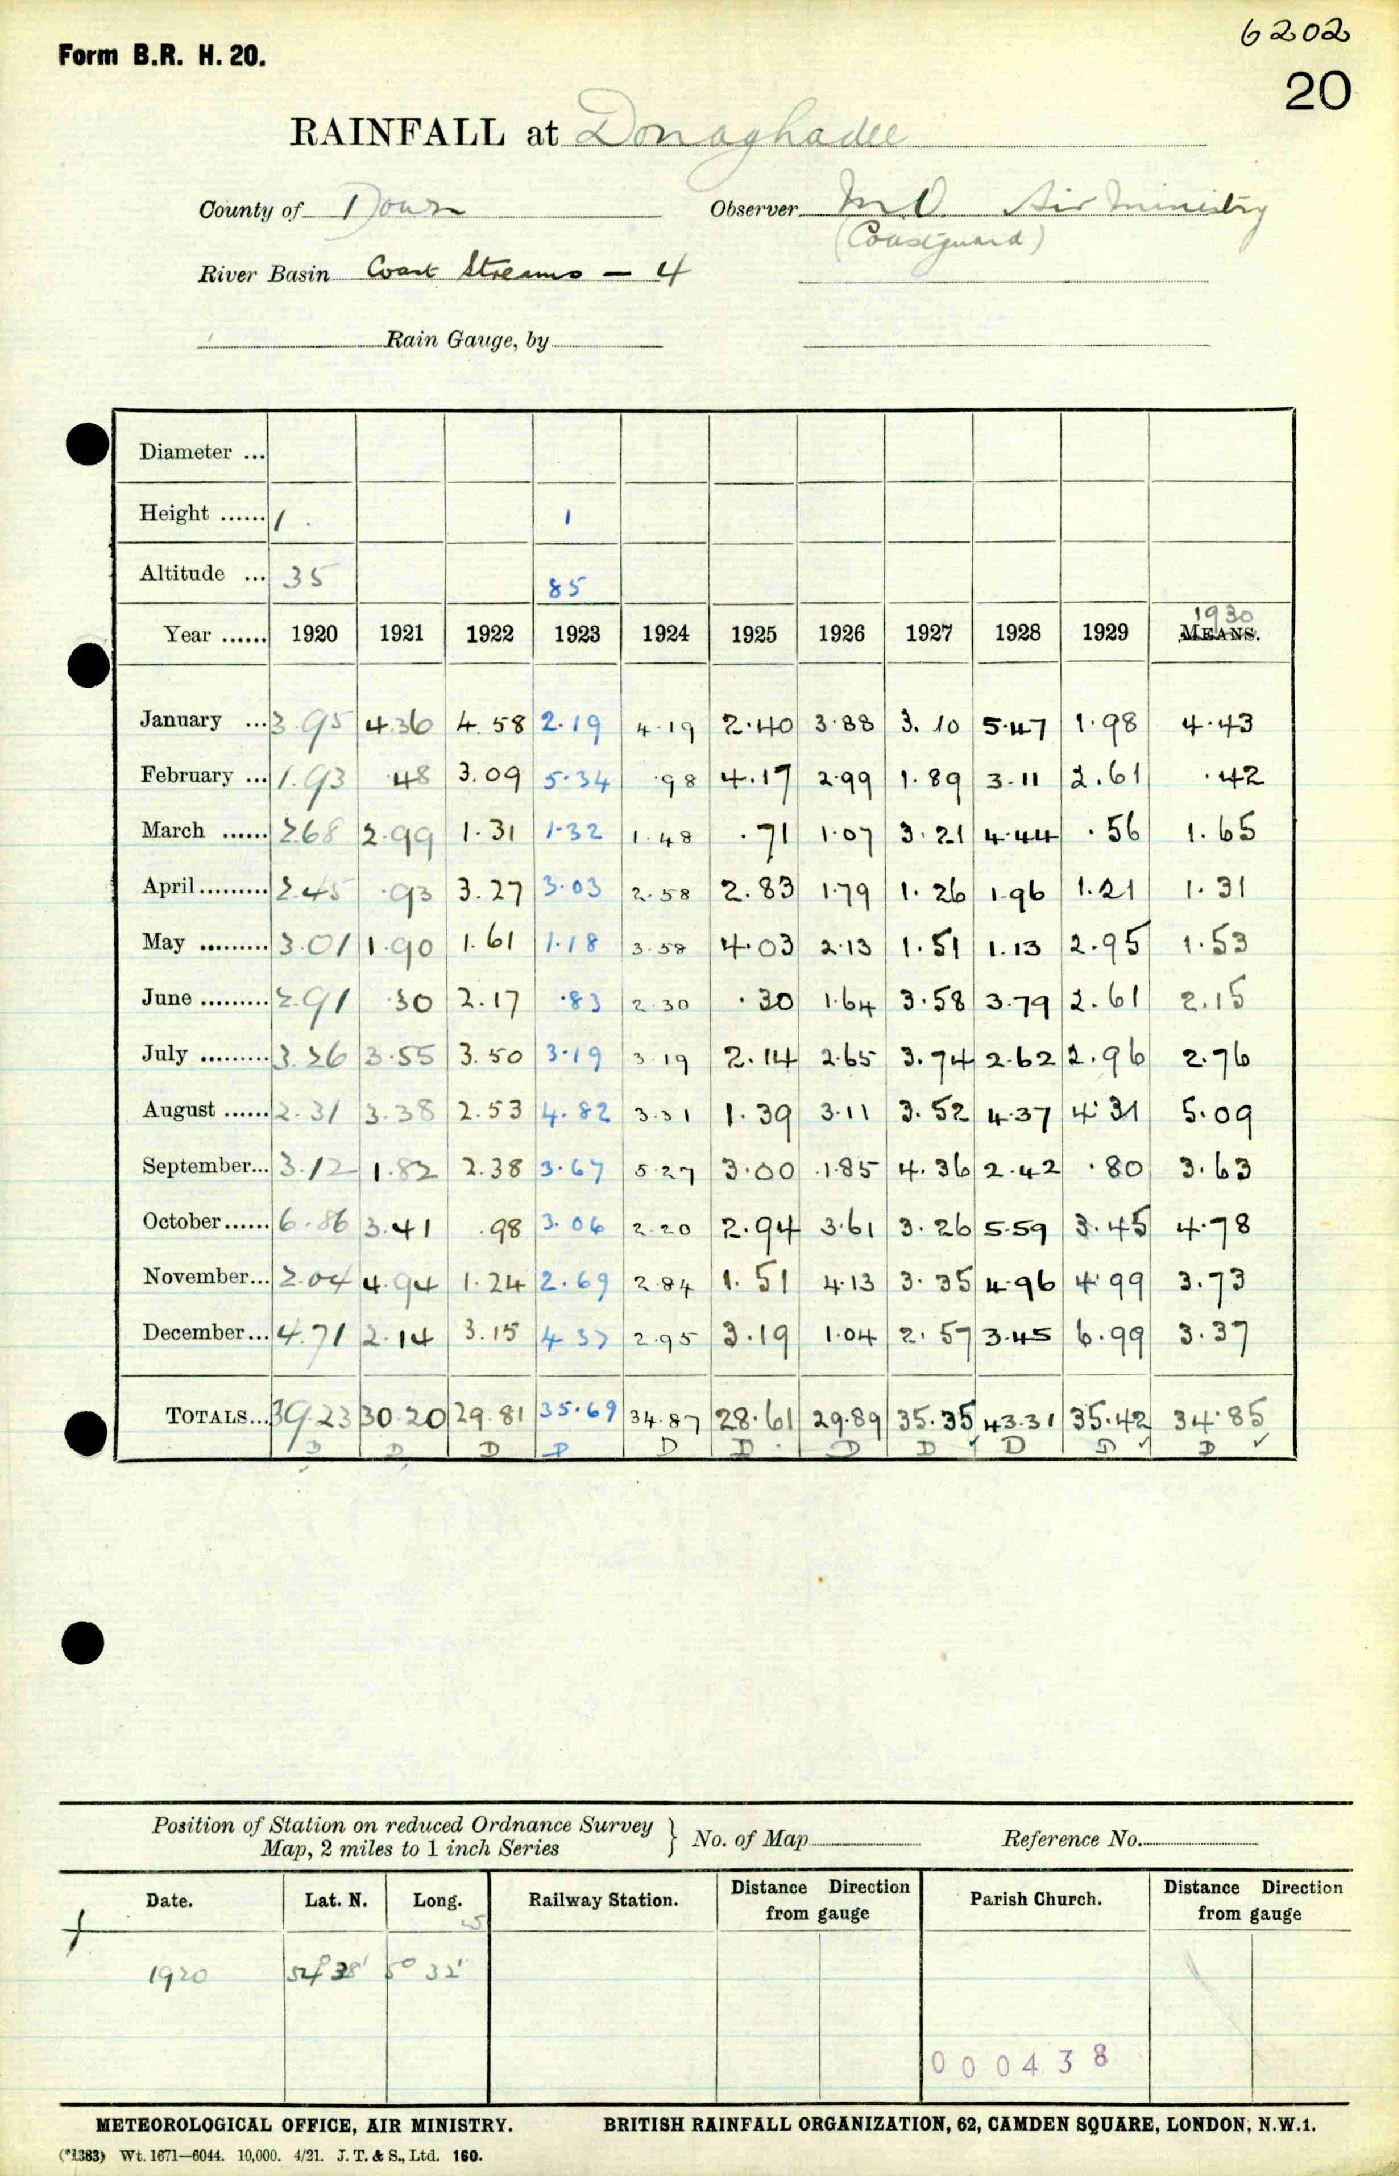 6202
Form B.R. H. 20.
20
RAINFALL at Donaghadee
County of Down Observer M O Air Ministry
(Coastguard)
River Basin Coast Streams - 4
Rain Gauge, by
Diameter ...
Height ...... 1 1
Altitude ... 35 85
1930
Year ...... 1920 1921 1922 1923 1924 1925 1926 1927 1928 1929 MEANS.
January ... 3.95 4.36 4.58 2.19 4.19 2.40 3.88 3.10 5.47 1.98 4.43
February ... 1.93 .48 3.09 5.34 .98 4.17 2.99 1.89 3.11 2.61 .42
March ...... 2.68 2.99 1.31 1.32 1.48 .71 1.07 3.21 4.44 .56 1.65
April ......... 2.45 .93 3.27 3.03 2.58 2.83 1.79 1.26 1.96 1.21 1.31
May ......... 3.01 1.90 1.61 1.18 3.58 4.03 2.13 1.51 1.13 2.95 1.53
June ......... 2.91 .30 2.17 .83 2.30 .30 1.64 3.58 3.79 2.61 2.15
July ......... 3.26 3.55 3.50 3.19 3.19 2.14 2.65 3.74 2.62 2.96 2.76
August ...... 2.31 3.38 2.53 4.82 3.31 1.39 3.11 3.52 4.37 4.31 5.09
September... 3.12 1.82 2.38 3.67 5.27 3.00 1.85 4.36 2.42 .80 3.63
October...... 6.86 3.41 .98 3.06 2.20 2.94 3.61 3.26 5.59 3.45 4.78
November... 2.04 4.94 1.24 2.69 2.84 1.51 4.13 3.35 4.96 4.99 3.73
December... 4.71 2.14 3.15 4.37 2.95 3.19 1.04 2.57 3.45 6.99 3.37
TOTALS... 39.23 30.20 29.81 35.69 34.87 28.61 29.89 35.35 43.31 35.42 34.85
D D D D D D D D ✓ D D ✓ D ✓
Position of Station on reduced Ordnance Survey
Map, 2 miles to 1 inch Series } No. of Map Reference No.
Date. Lat. N. Long. Railway Station. Distance Direction from gauge Parish Church. Distance Direction from gauge
W
1920 54° 38' 5° 32'
000438
METEOROLOGICAL OFFICE, AIR MINISTRY. BRITISH RAINFALL ORGANIZATION, 62, CAMDEN SQUARE, LONDON, N.W.1.
(*1383) Wt. 1671—6044. 10,000. 4/21. J. T. & S., Ltd. 160.